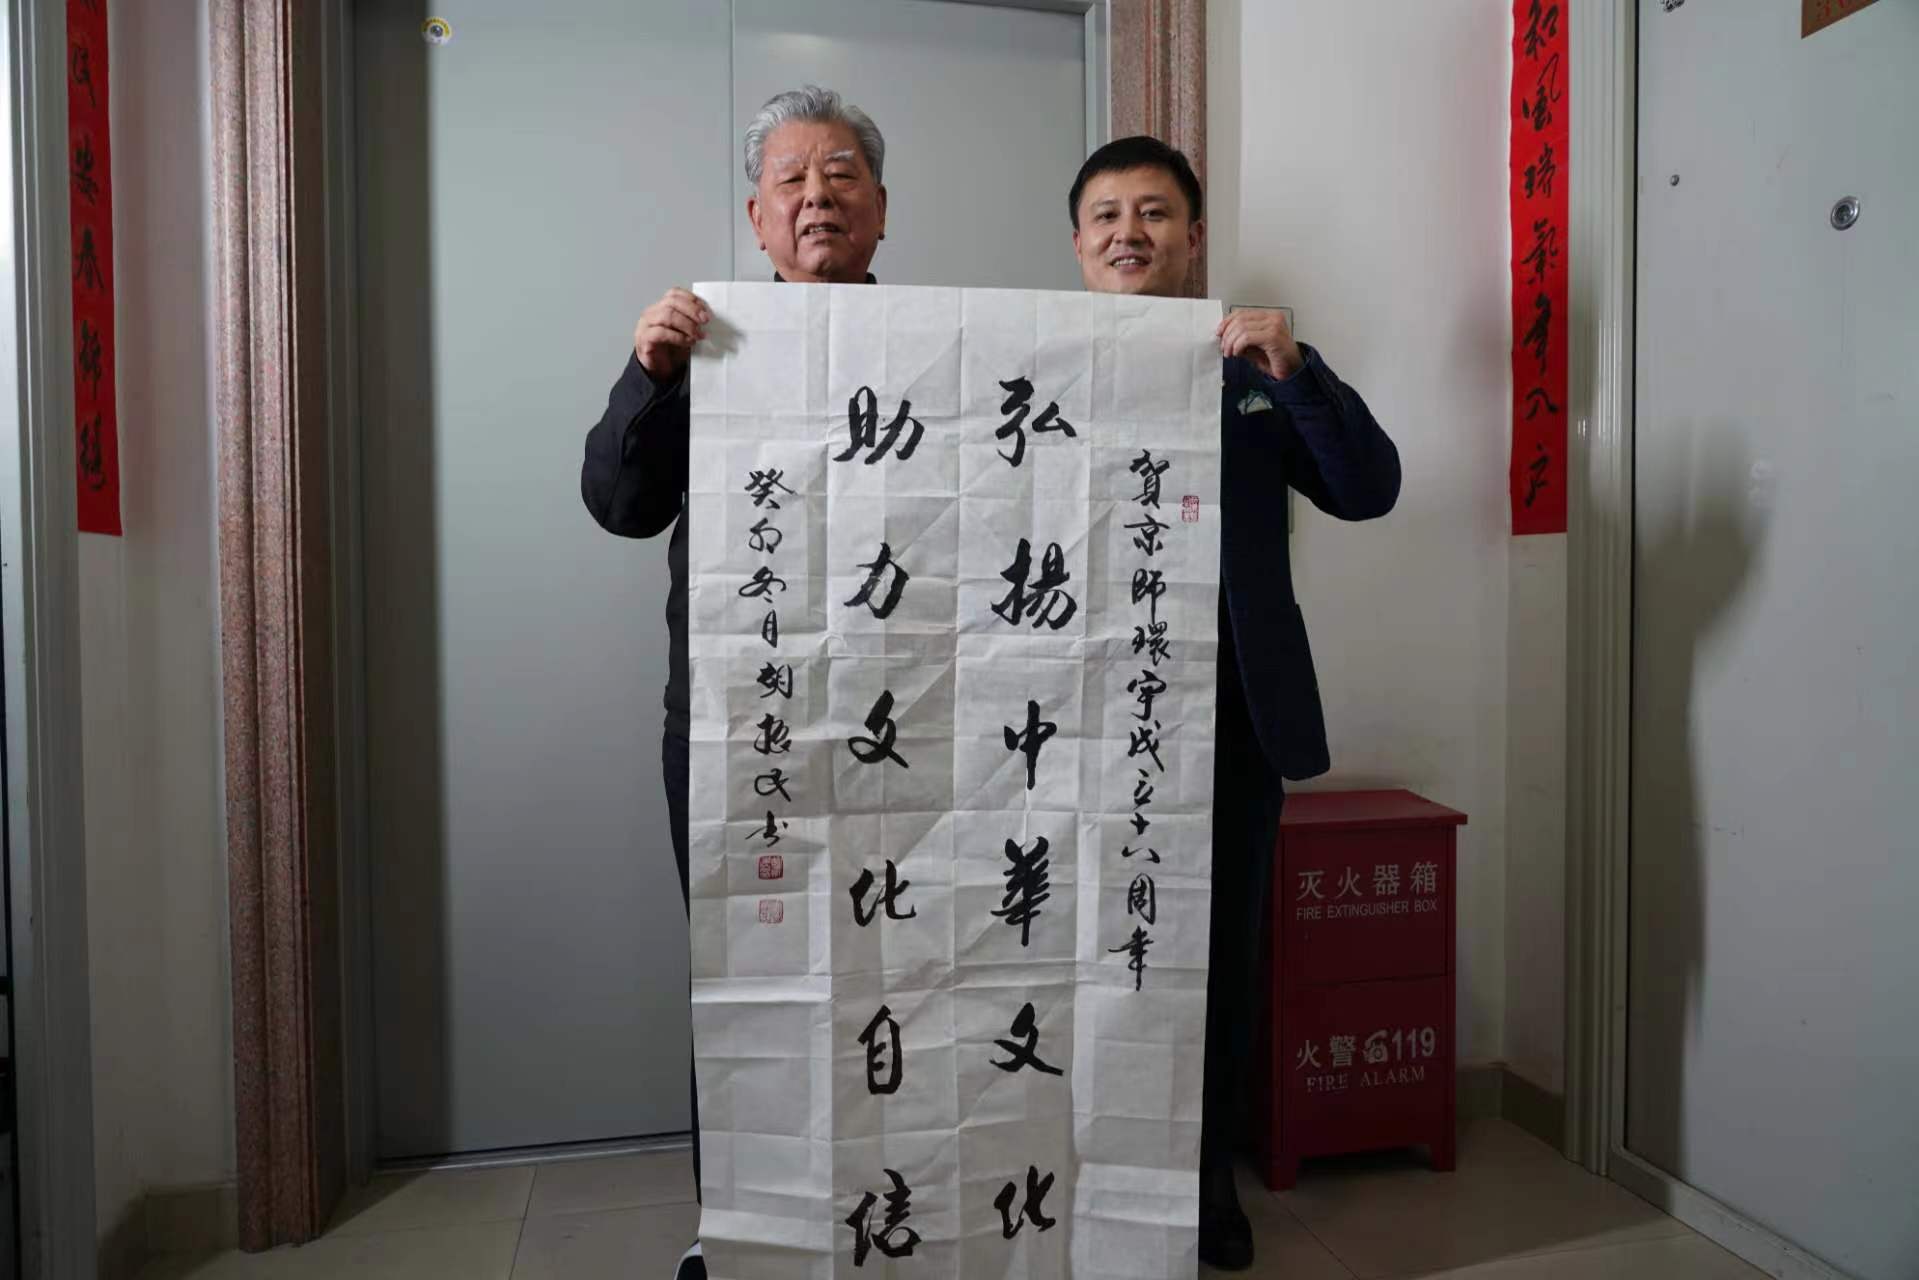 賀京師環宇成立十八周年
弘揚中華文化
助力文化自信
癸卯冬月胡振民书
和風瑞氣年入户
春
灭火器箱
FIRE EXTINGUISHER BOX
火警119
FIRE ALARM